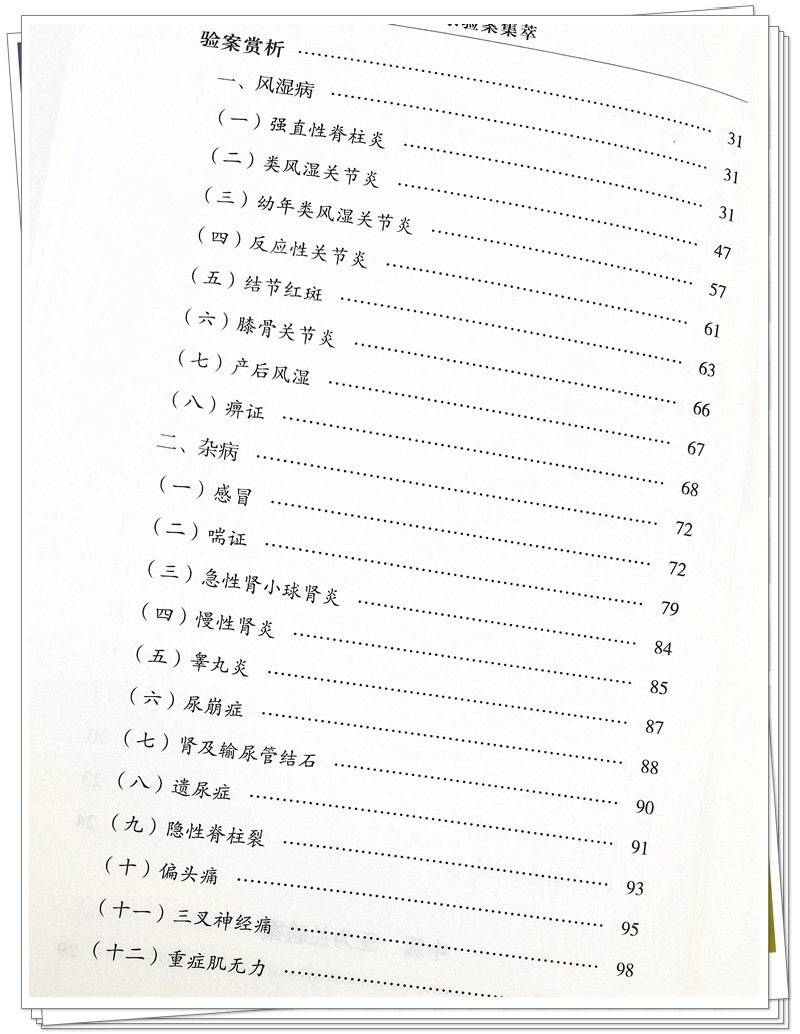 验案集萃
验案赏析 …… 31
一、风湿病 …… 31
（一）强直性脊柱炎 …… 31
（二）类风湿关节炎 …… 47
（三）幼年类风湿关节炎 …… 57
（四）反应性关节炎 …… 61
（五）结节红斑 …… 63
（六）膝骨关节炎 …… 66
（七）产后风湿 …… 67
（八）痹证 …… 68
二、杂病 …… 72
（一）感冒 …… 72
（二）喘证 …… 79
（三）急性肾小球肾炎 …… 84
（四）慢性肾炎 …… 85
（五）睾丸炎 …… 87
（六）尿崩症 …… 88
（七）肾及输尿管结石 …… 90
（八）遗尿症 …… 91
（九）隐性脊柱裂 …… 93
（十）偏头痛 …… 95
（十一）三叉神经痛 …… 98
（十二）重症肌无力 ……